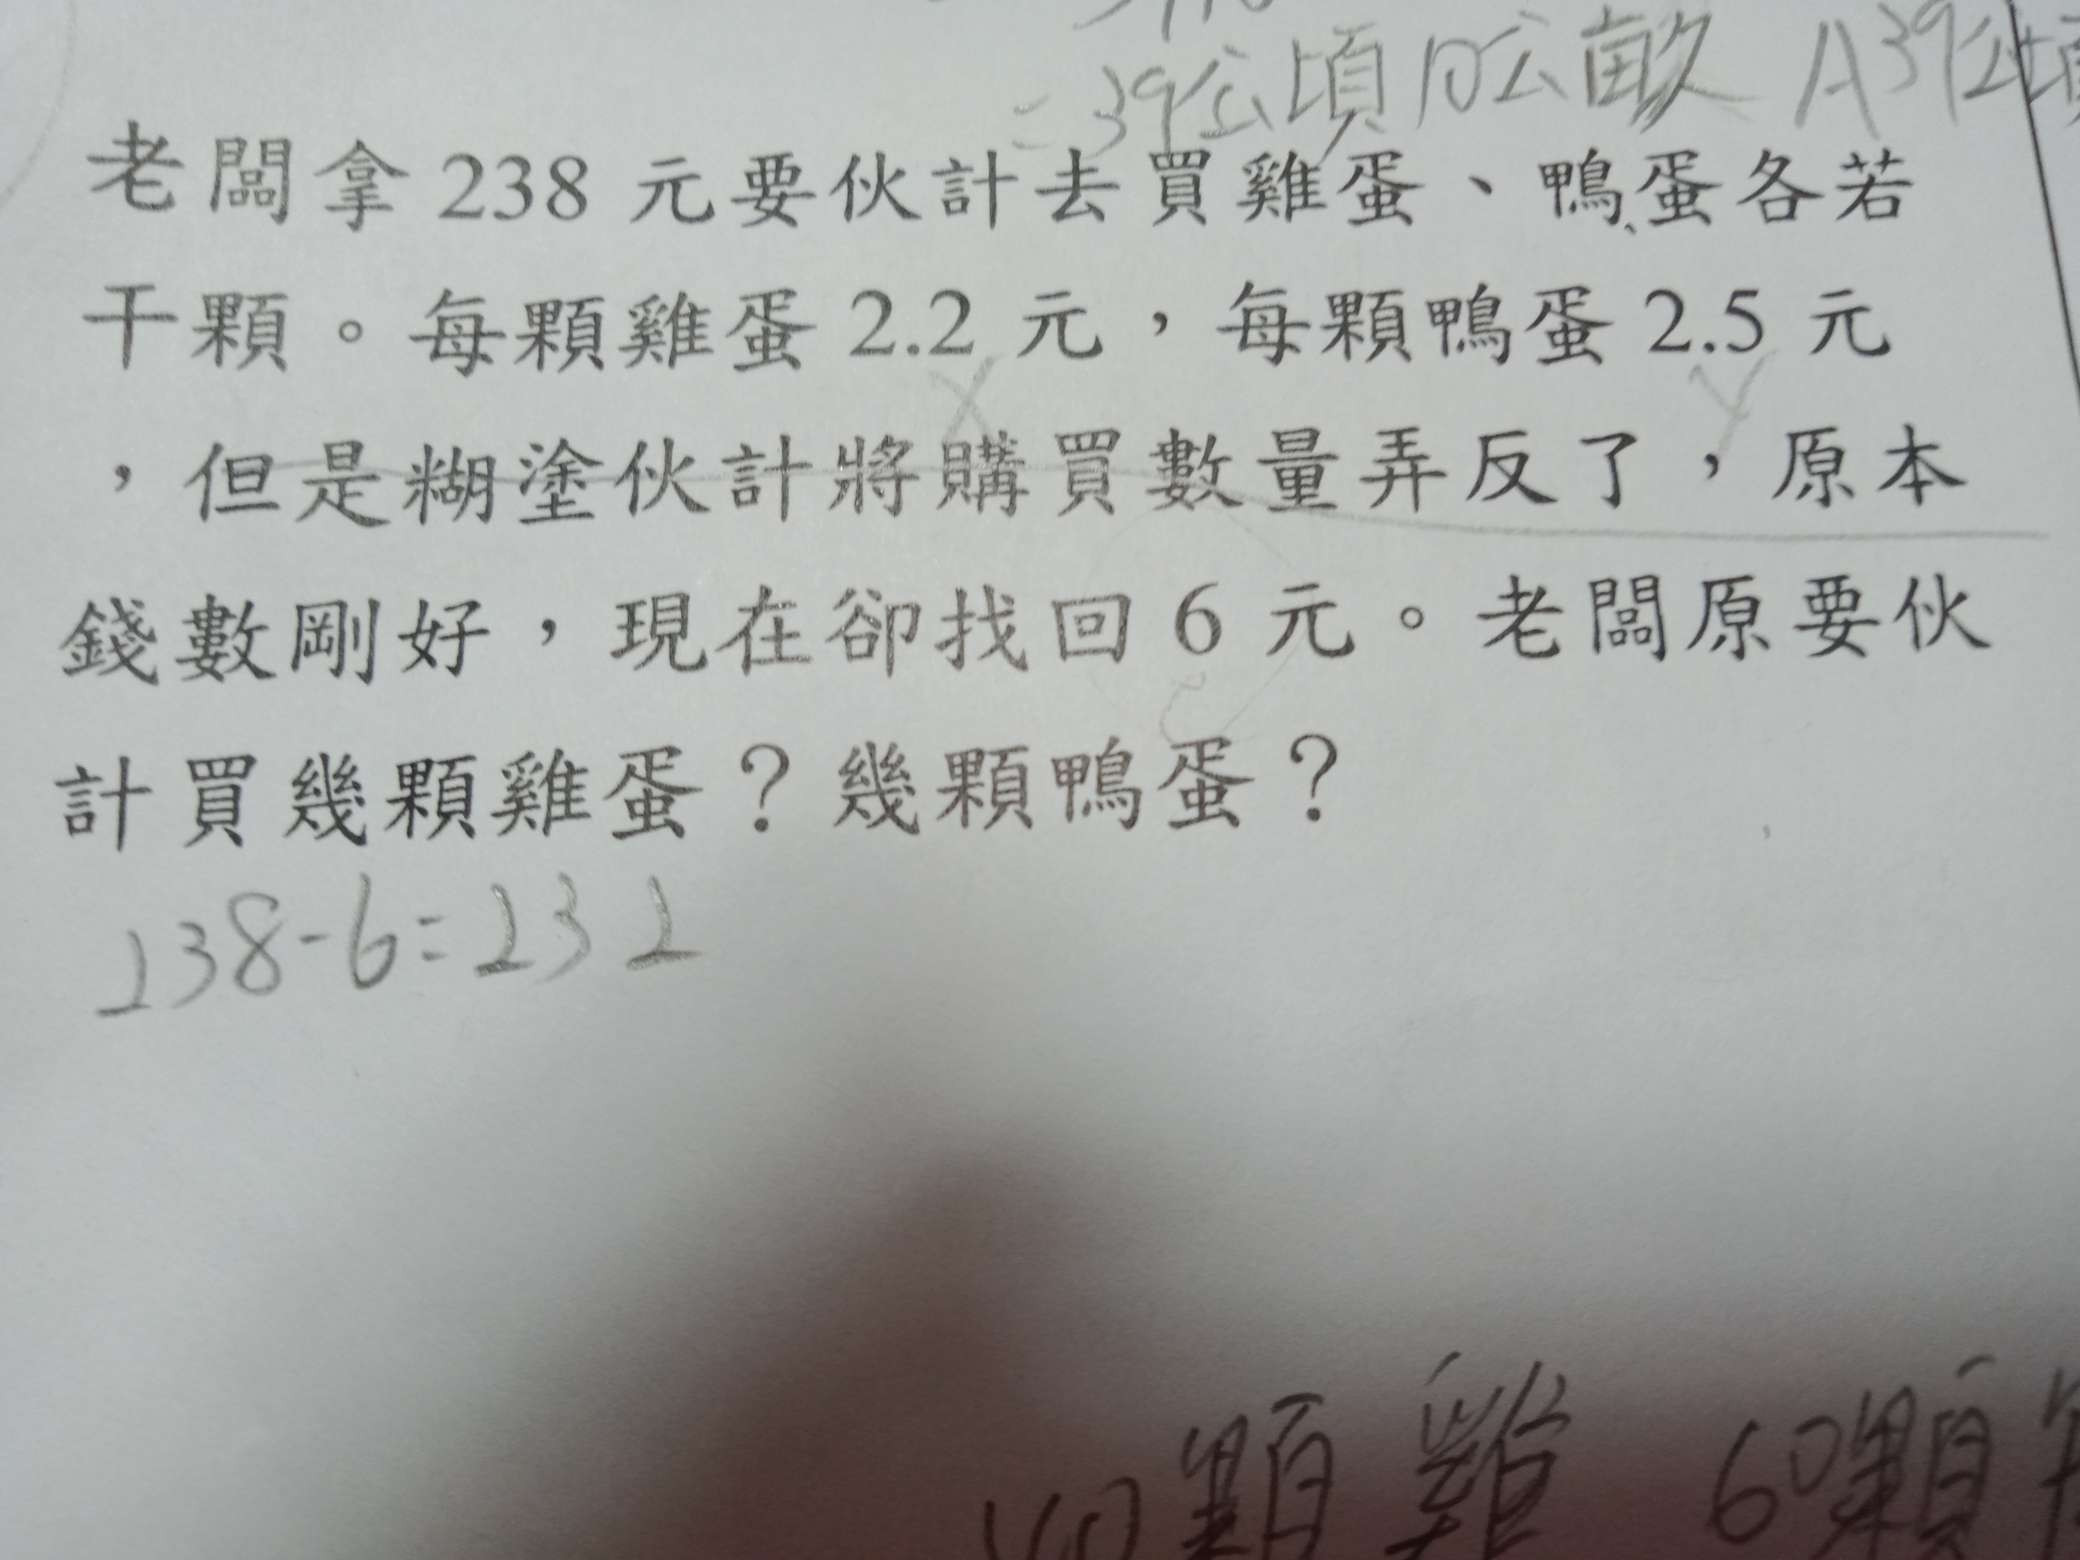 =39公頃10公畝 A39公頃
老闆拿238元要伙計去買雞蛋、鴨蛋各若
干顆。每顆雞蛋2.2元,每顆鴨蛋2.5元
X Y
,但是糊塗伙計將購買數量弄反了,原本
錢數剛好,現在卻找回6元。老闆原要伙
計買幾顆雞蛋?幾顆鴨蛋?
238-6=232
40顆雞 60顆